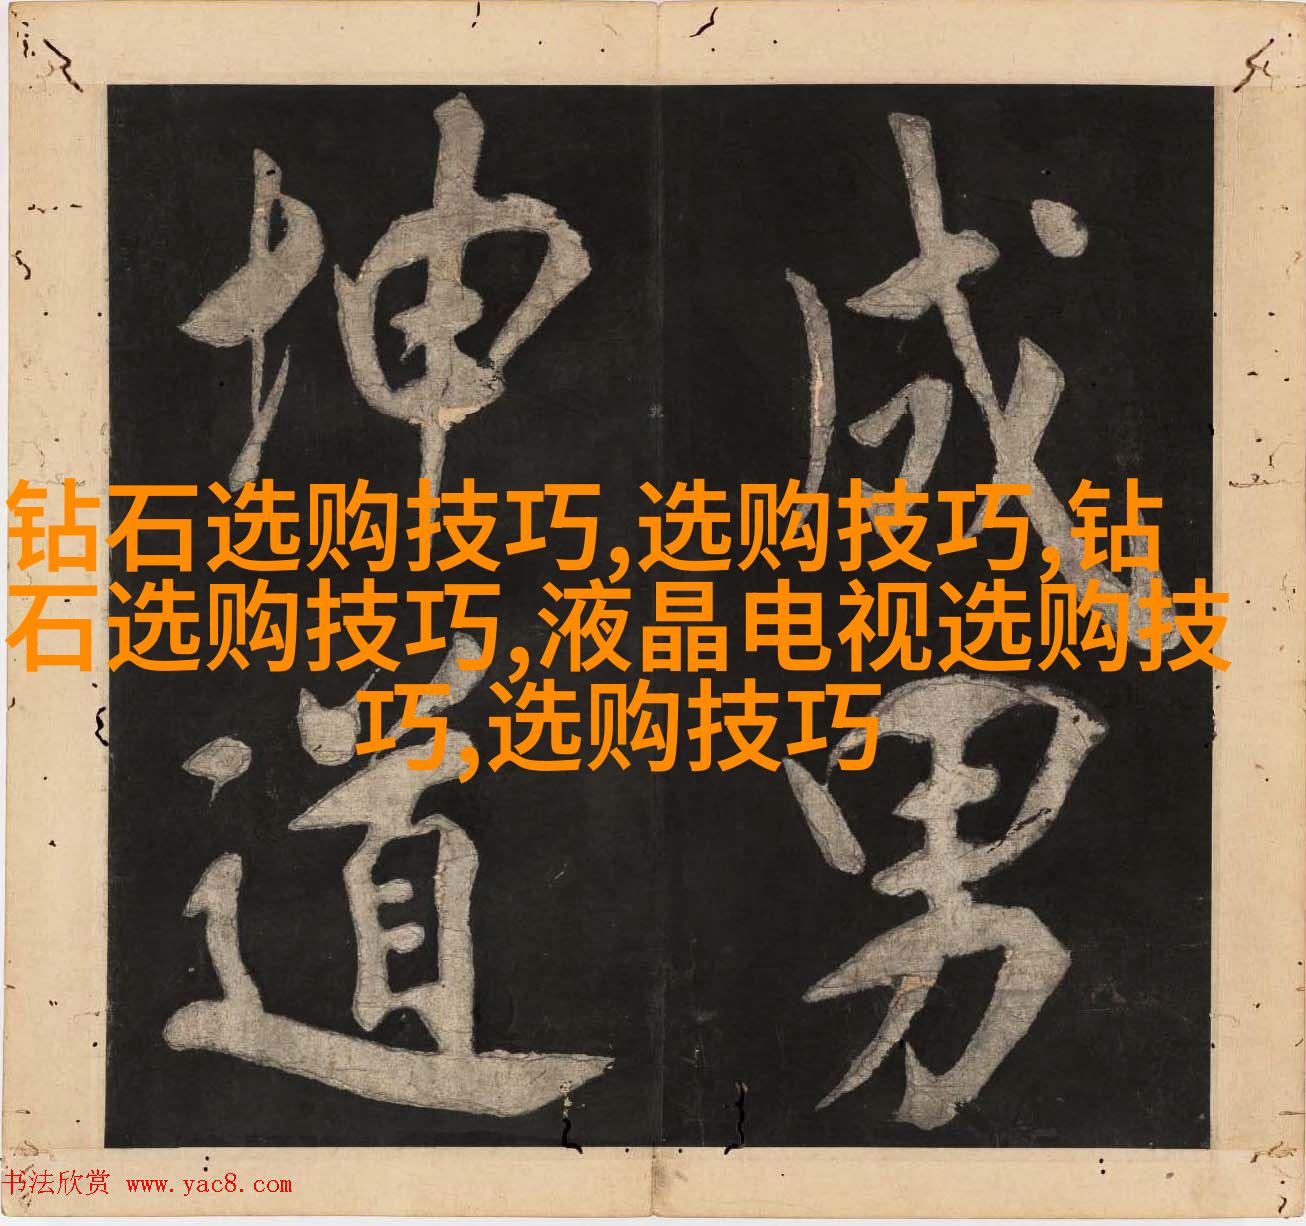 成男
坤道
钻石选购技巧,选购技巧,钻
石选购技巧,液晶电视选购技
巧,选购技巧
书法欣赏 www.yac8.com